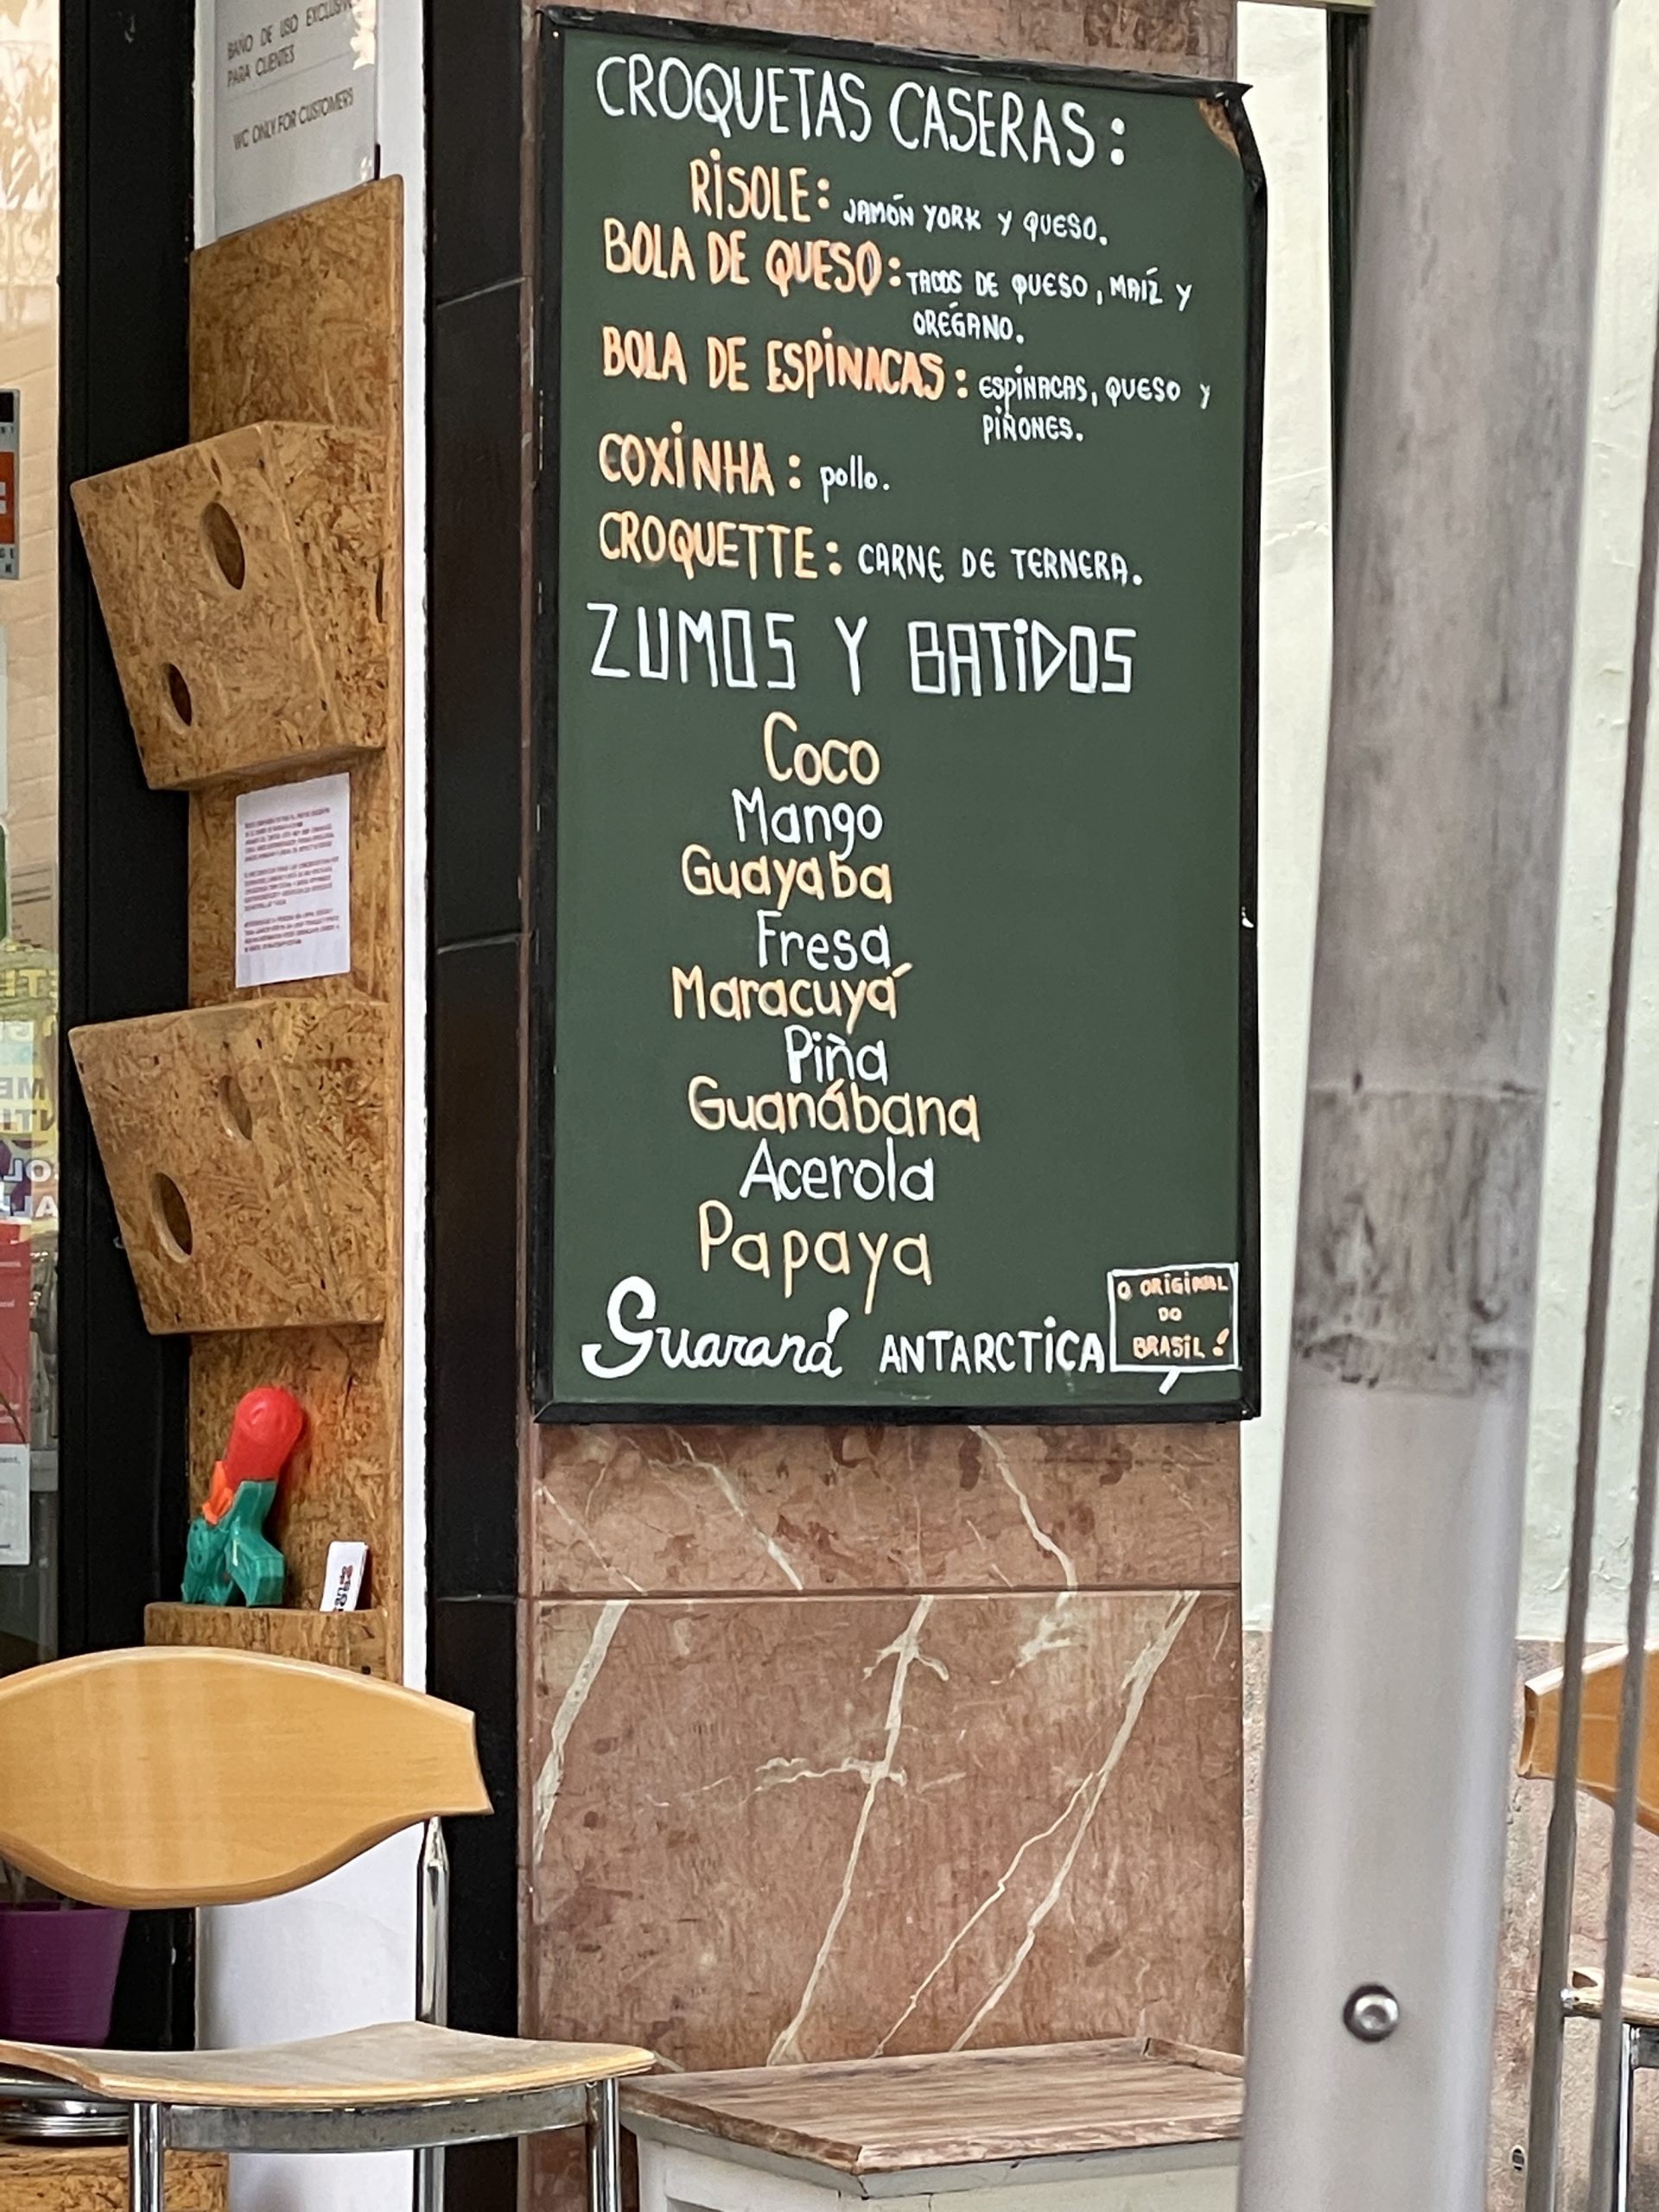 BAÑO DE USO EXCLUSIVO
PARA CLIENTES
WC ONLY FOR CUSTOMERS
CROQUETAS CASERAS:
RISOLE: JAMÓN YORK Y QUESO.
BOLA DE QUESO: TACOS DE QUESO, MAÍZ Y
ORÉGANO.
BOLA DE ESPINACAS: ESPINACAS, QUESO Y
PIÑONES.
COXINHA: pollo.
CROQUETTE: CARNE DE TERNERA.
ZUMOS Y BATIDOS
Coco
Mango
Guayaba
Fresa
Maracuyá
Piña
Guanábana
Acerola
Papaya
Guaraná ANTARCTICA
O ORIGINAL
DO
BRASIL!